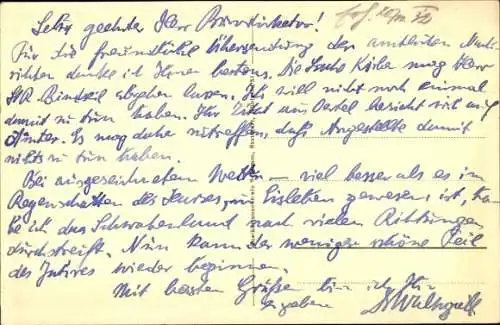 Sehr geehrter Herr
Für die freundliche Übersendung der amtlichen Nach-
richten danke ich Ihnen bestens. Die Sache Kirche mag Herr
StR abgeben lassen. Ich will nicht noch einmal
damit zu tun haben. Ihr Zitat aus bezieht sich auf
Es mag daher zutreffen, daß Angestellte damit
nichts zu tun haben.
Bei ausgezeichnetem Wetter – viel besser als es im
Regenschatten des Harzes, in Eisleben gewesen ist, ha-
be ich das Schwabenland nach vielen Richtungen
durchstreift. Nun kann der weniger schöne Teil
des Jahres wieder beginnen.
Mit besten Grüßen bin ich Ihr
ergebener